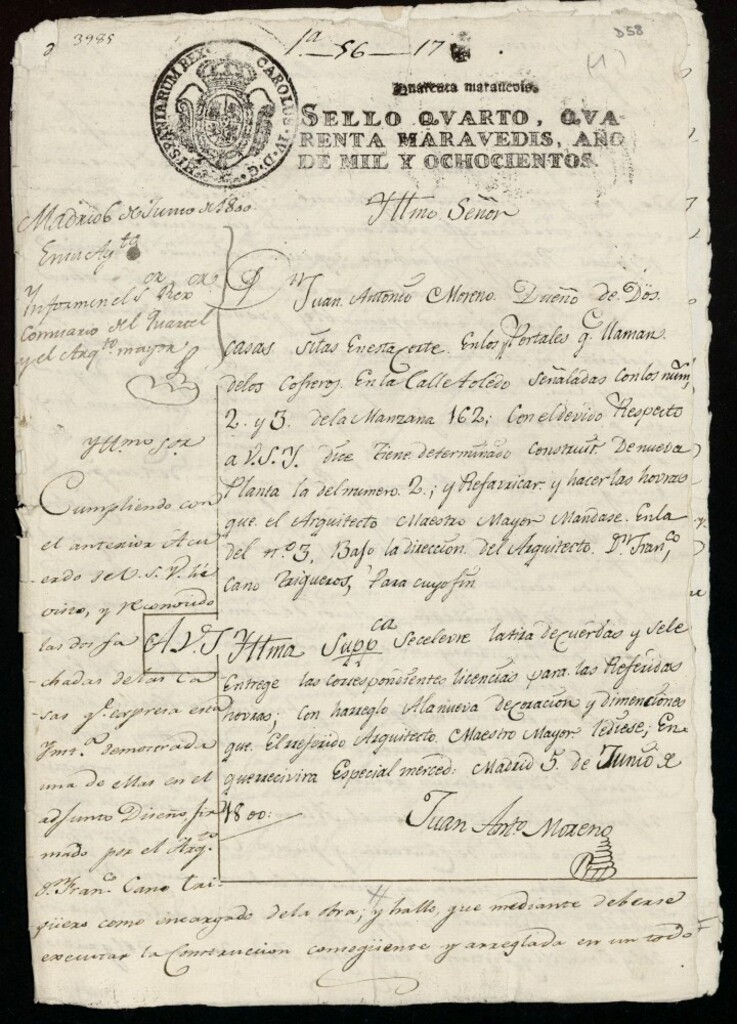 3985
1ª 56 17
D58
(1)
HISPANIARUM REX CAROLUS IV D G
Quarenta maravedis
SELLO QVARTO, QVA-
RENTA MARAVEDIS, AÑO
DE MIL Y OCHOCIENTOS
Madrid 6 de Junio de 1800
En su Aytº
Informen el Sor Rexor
Comisario del Quartel
y el Arqto mayor
Yttmo Señor
Dn Juan Antonio Moreno. Dueño de Dos
casas sitas En esta Corte. En los Portales q.e llaman
de los Cofreros. En la Calle toledo señaladas con los num.
2. y 3. de la Manzana 162; Con el devido Respecto
a V.S.Y. dice tiene determinado construir. De nueva
Planta la del numero 2.; y Refavricar y hacer las hovras
que el Arquitecto Maestro Mayor Mandase. En la
del nº 3, Bajo la direccion del Arquitecto. Dn Franco
Cano Trigueros, Para cuyo fin
A.V.S. Yttma Suppca Se celevre la tira de cuerdas y se le
Entrege las correspondentes licencias para las Referidas
hovras; con harreglo A la nueva decoracion y dimenciones
que El referido Arquitecto Maestro Mayor lediese; En
que recivira Especial merced: Madrid 5 de Junio de
1800:
Juan Anto Moreno
Yttmo Sor
Cumpliendo con
el anterior Acu-
erdo de V.S.Y. he
visto, y reconocido
las dos fa-
chadas de las Ca-
sas q.e expresa esta
Ynsta demostrada
una de ellas en el
adjunto Diseño, fir-
mado por el Arqto
Dn Franco Cano Tri-
güero como encargado de la obra; y hallo, que mediante deberse
executar la Construccion consigüiente y arreglada en un todo